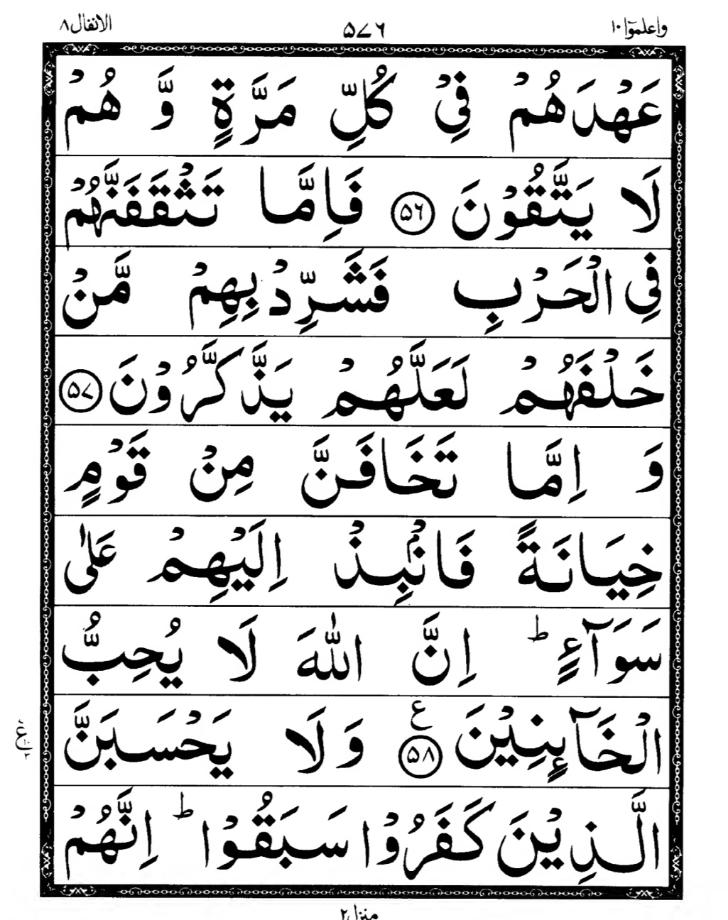 واعلموٓا ١٠ ٥٧٦ الانفال ٨
عَهْدَهُمْ فِيْ كُلِّ مَرَّةٍ وَّ هُمْ
لَا يَتَّقُوْنَ ٥٦ فَاِمَّا تَثْقَفَنَّهُمْ
فِي الْحَرْبِ فَشَرِّدْ بِهِمْ مَّنْ
خَلْفَهُمْ لَعَلَّهُمْ يَذَّكَّرُوْنَ ٥٧
وَ اِمَّا تَخَافَنَّ مِنْ قَوْمٍ
خِيَانَةً فَانْۢبِذْ اِلَيْهِمْ عَلٰى
سَوَآءٍ ؕ اِنَّ اللّٰهَ لَا يُحِبُّ
الْخَآئِنِيْنَ ٥٨ ع وَ لَا يَحْسَبَنَّ
الَّذِيْنَ كَفَرُوْا سَبَقُوْا ؕ اِنَّهُمْ
منزل ٢